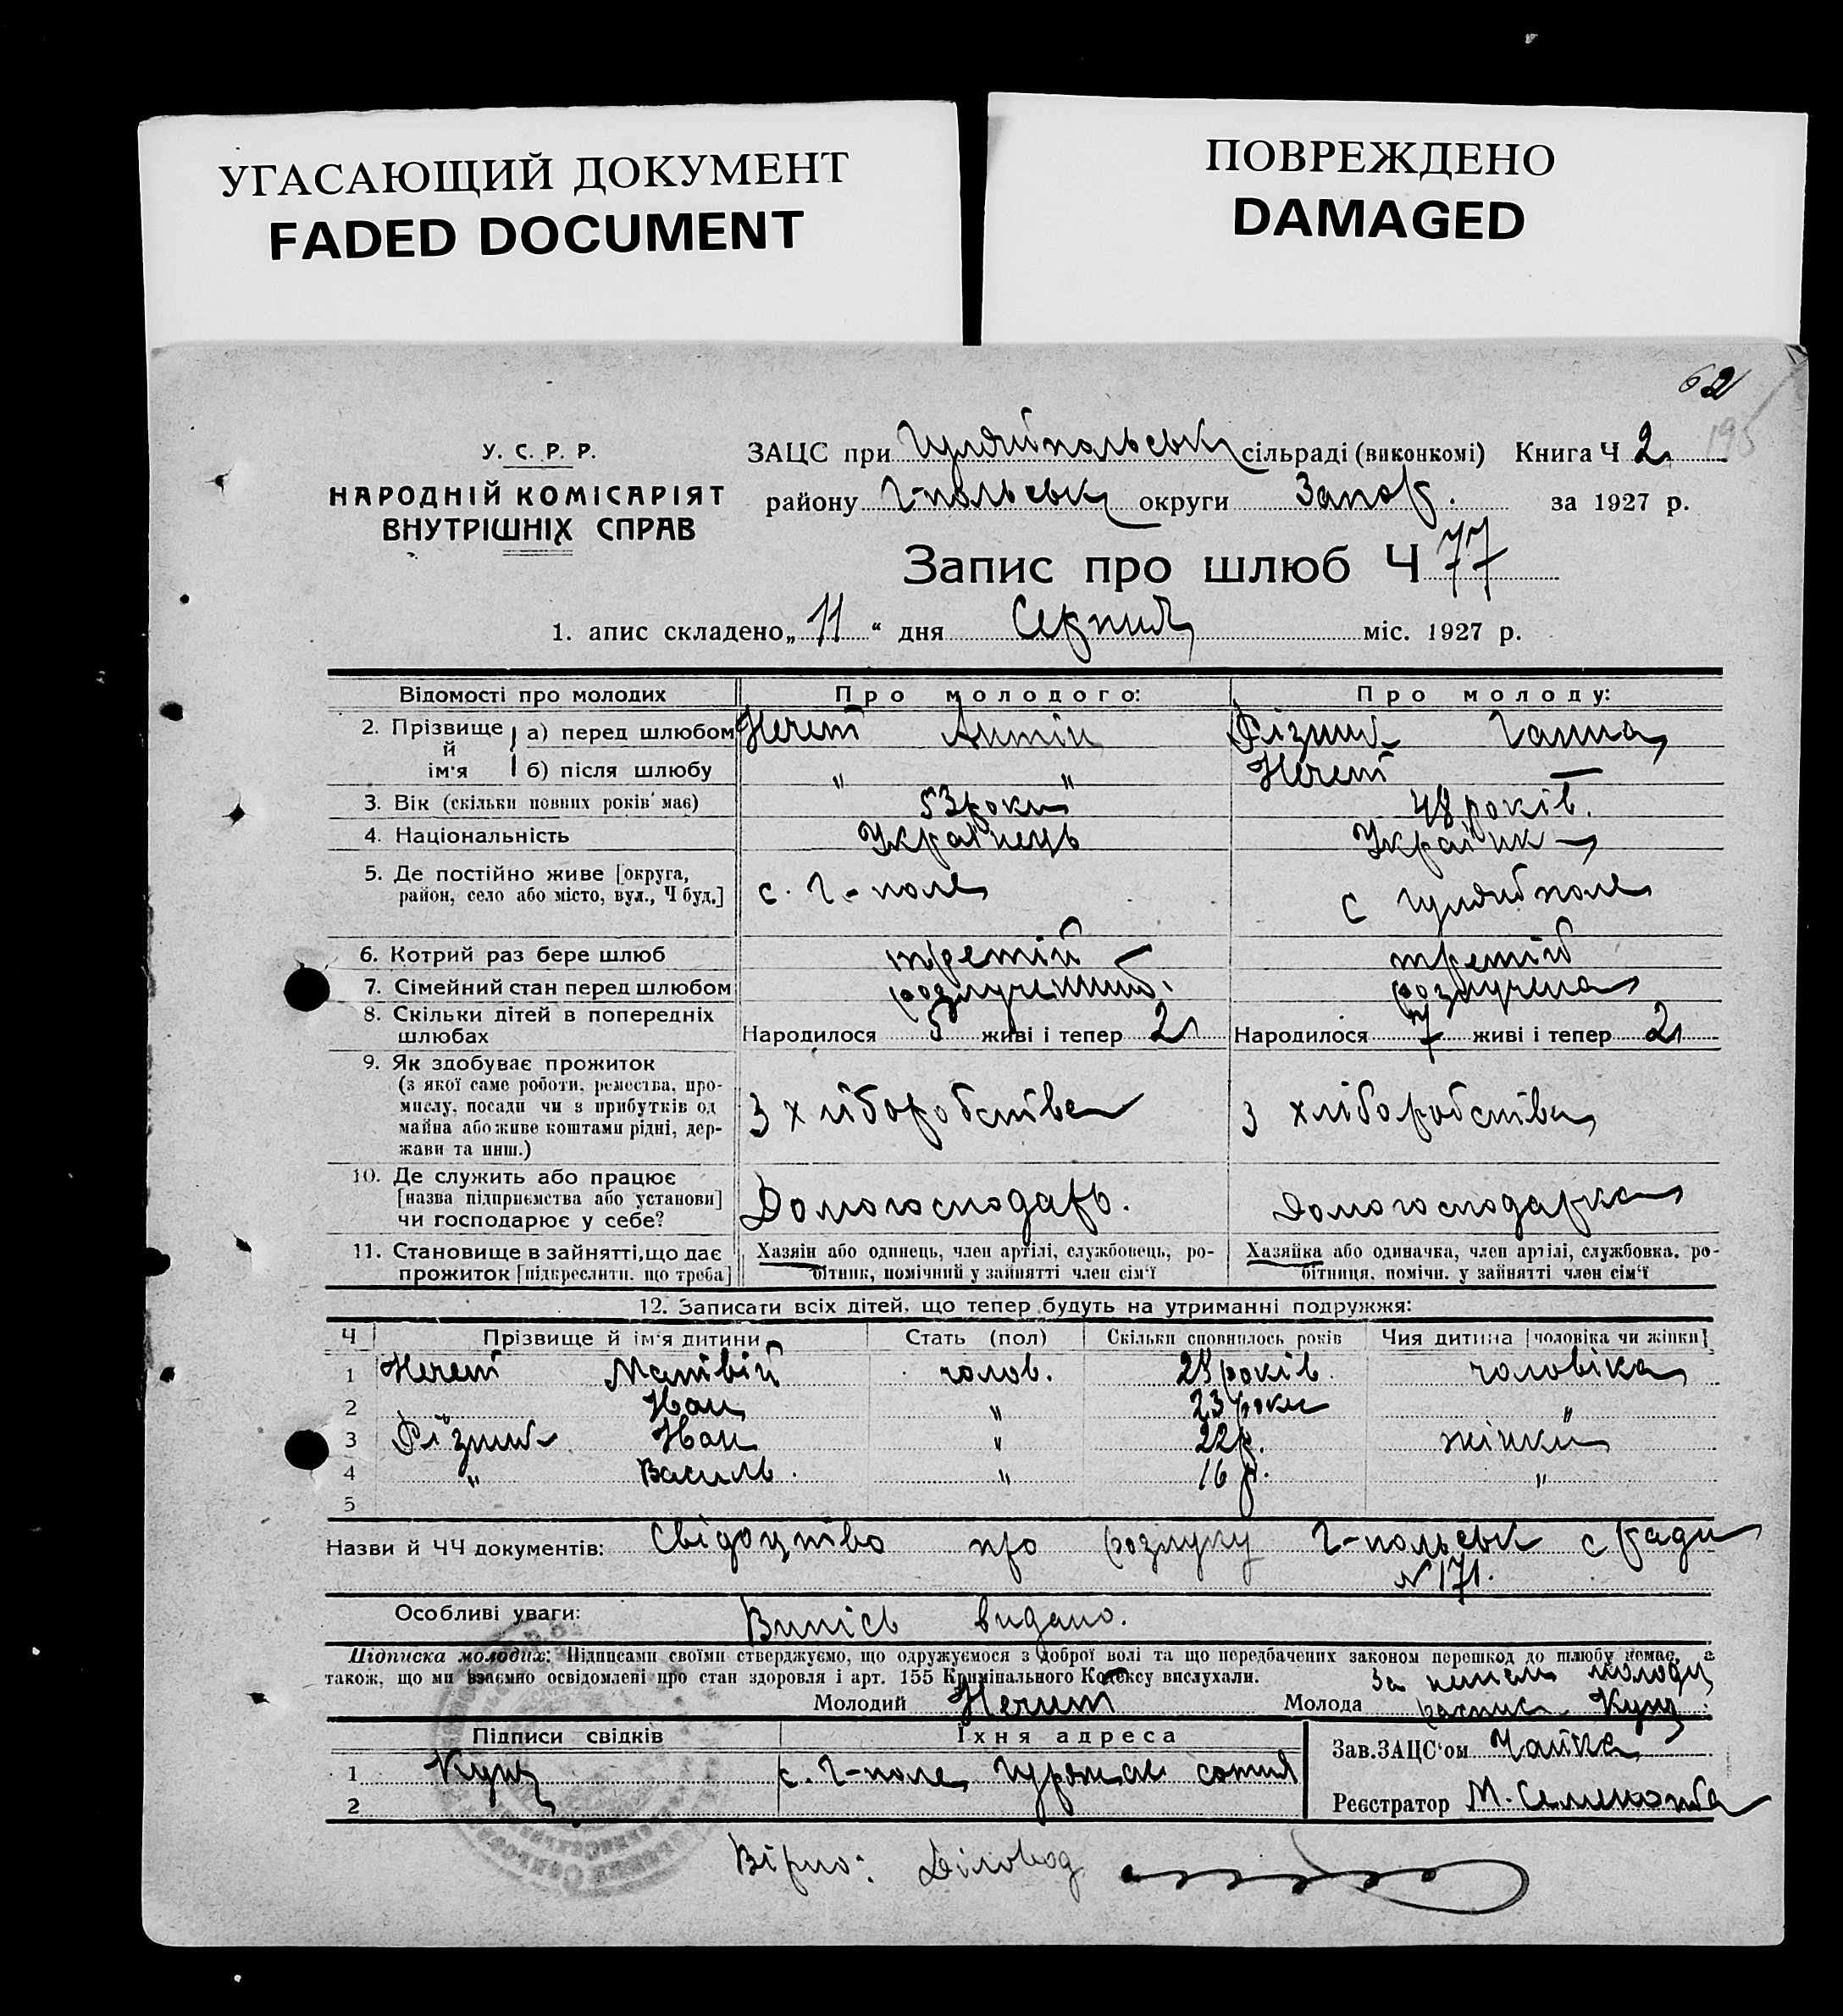 УГАСАЮЩИЙ ДОКУМЕНТ
FADED DOCUMENT
ПОВРЕЖДЕНО
DAMAGED
62
195
У. С. Р. Р.
НАРОДНІЙ КОМІСАРІЯТ
ВНУТРІШНІХ СПРАВ
ЗАЦС при Гуляйпольськ сільраді (виконкомі) Книга Ч 2
району Г-польськ округи Запор. за 1927 р.
Запис про шлюб Ч 77
1. апис складено „ 11 “ дня Серпня міс. 1927 р.
Відомості про молодих Про молодого: Про молоду:
2. Прізвище й ім'я а) перед шлюбом Нечет Антін Різник Ганна
б) після шлюбу " " Нечет —
3. Вік (скільки повних років має) 53 роки 48 років.
4. Національність Українець Українк
5. Де постійно живе [округа, район, село або місто, вул., Ч буд.] с. Г-поле с Гуляйполе
6. Котрий раз бере шлюб третій третій
7. Сімейний стан перед шлюбом розлучений. розлучена
8. Скільки дітей в попередніх шлюбах Народилося 5 живі і тепер 2 Народилося 7 живі і тепер 2
9. Як здобуває прожиток (з якої саме роботи, ремества, промислу, посади чи з прибутків од майна або живе коштами рідні, держави та инш.) З хліборобства з хліборобства
10. Де служить або працює [назва підприємства або установи] чи господарює у себе? Домогосподарь. Домогосподарка
11. Становище в зайнятті, що дає прожиток [підкреслити, що треба] Хазяін або одинець, член артілі, службовець, робітник, помічний у зайнятті член сім'ї Хазяйка або одиначка, член артілі, службовка, робітниця, помічн. у зайнятті член сім'ї
12. Записати всіх дітей, що тепер будуть на утриманні подружжя:
Ч Прізвище й ім'я дитини Стать (пол) Скільки сповнилось років Чия дитина [чоловіка чи жінки]
1 Нечет Матвій чолов. років. чоловіка
2 Іван " 23 роки "
3 Різник Іван " 22 р. жінки
4 " Василь. " 16 р. "
5
Назви й ЧЧ документів: Свідоцтво про розлуку Г-польськ с ради
№ 171.
Особливі уваги: Випісь видано.
Підписка молодих: Підписами своїми стверджуємо, що одружуємося з доброї волі та що передбачених законом перешкод до шлюбу немає, а
також, що ми взаємно освідомлені про стан здоровля і арт. 155 Кримінального Кодексу вислухали.
За молоду
Молодий Нечет Молода Кущ
Підписи свідків Їхня адреса
1 Кущ с. Г-поле сотня
2
Зав. ЗАЦС'ом Чайка
Реєстратор М.
Вірно: Діловод